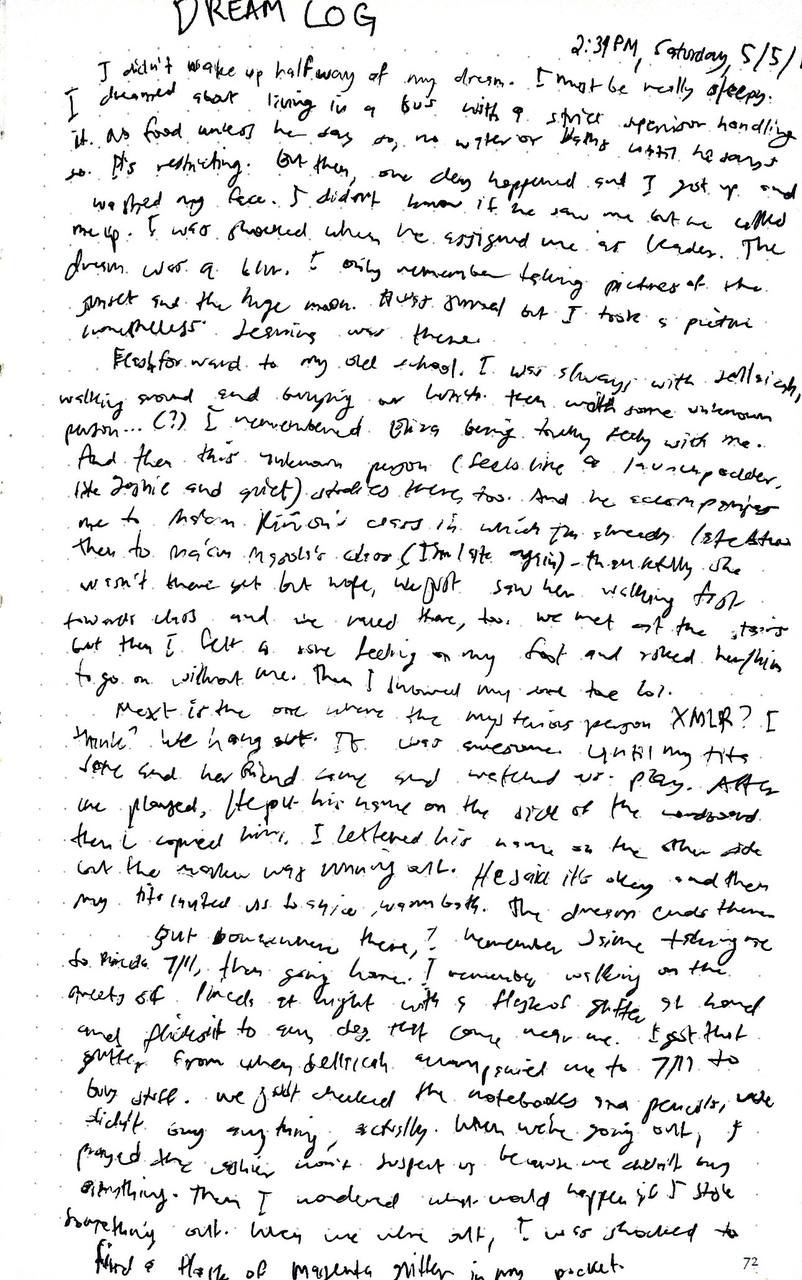 DREAM LOG
2:39PM, Saturday, 5/5/
I didn't wake up halfway of my dream. I must be really sleepy.
I dreamed about living in a bus with a strict supervisor handling
it. No food unless he says so, no water or baths until he says
so. It's restricting. But then, one day happened and I got up and
washed my face. I didn't know if he saw me but he called
me up. I was shocked when he assigned me as leader. The
dream was a blur. I only remember taking pictures of the
sunset and the huge moon. It was surreal but I took a picture
nonetheless. was there.
Flash forward to my old school. I was always with
walking around and buying our lunch. Then with some unknown
person... (?) I remembered being touchy feely with me.
And then this unknown person (feels like a
like and quiet) studies there, too. And he accompanies
me to Ma'am class in which I'm already late
then to Ma'am class (I'm late again) - thankfully she
wasn't there yet but nope, we just saw her walking fast
towards class and we raced there, too. We met at the stairs
but then I felt a sore feeling on my foot and asked her/him
to go on without me. Then I showed my sore toe lol.
Next is the one where the mysterious person XMLR? I
think? We hang out. It was awesome. Until my tita
and her friend came and watched us play. After
we played, He put his name on the side of the
then I copied him. I lettered his name on the other side
but the marker was running out. He said it's okay and then
my tita invited us to a nice, warm bath. The dream ends there.
But somewhere there, I remember taking me
to 7/11, then going home. I remember walking on the
streets of at night with a flask of glitter at hand
and flick it to any dog that come near me. I got that
glitter from when accompanied me to 7/11 to
buy stuff. We just checked the notebooks and pencils, we
didn't buy anything, actually. When we're going out, I
prayed the cashier won't suspect us because we didn't buy
anything. Then I wondered what would happen if I stole
something out. When we were out, I was shocked to
find a flask of magenta glitter in my pocket.
72